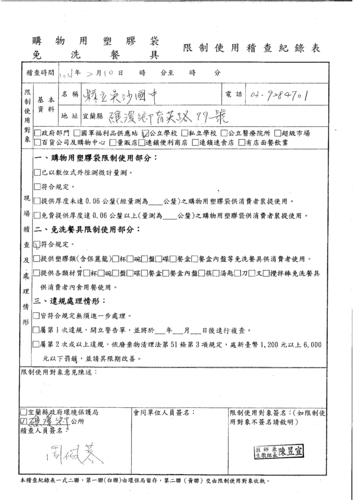 購物用塑膠袋
免洗餐具
限制使用稽查紀錄表
稽查時間 年 2月10日 時 分至 時 分
限制使用對象 基本資料 名稱 縣立吳沙國中 電話 03-9284701
地址 宜蘭縣 礁溪鄉 99號
□政府部門 □國軍福利品供應站 ☑公立學校 □私立學校 □公立醫療院所 □超級市場
□百貨公司及購物中心 □量販店 □連鎖便利商店 □連鎖速食店 □有店面餐飲業
現場稽查及處理情形
一、購物用塑膠袋限制使用部分：
□已以數位式外徑測微計量測。
□符合規定。
□提供厚度未達0.06公釐(經量測為 公釐)之購物用塑膠袋供消費者裝提使用。
□免費提供厚度達0.06公釐以上(量測為 公釐)之購物用塑膠袋供消費者裝提使用。
二、免洗餐具限制使用部分：
☑符合規定。
□提供塑膠類(含保麗龍)□杯□碗□盤□碟□餐盒□餐盒內盤等免洗餐具供消費者使用。
□提供各類材質□杯□碗□盤□碟□餐盒□餐盒內盤□筷□湯匙□刀□叉□攪拌棒免洗餐具
供消費者內食用餐使用。
三、違規處理情形：
□皆符合規定無須進一步處理。
□屬第1次違規，開立警告單，並將於 年 月 日後進行複查。
□屬第2次或以上違規，依廢棄物清理法第51條第3項規定，處新臺幣1,200元以上6,000
元以下罰鍰，並請其限期改善。
限制使用對象意見陳述：
□宜蘭縣政府環境保護局
☑礁溪鄉公所
稽查人員簽名：
會同單位人員簽名：
限制使用對象簽名：(如限制使
用對象不簽名請敘明)
陳昱宣
本稽查紀錄表一式二聯，第一聯(白聯)由環保局留存，第二聯(黃聯)交由限制使用對象收執。